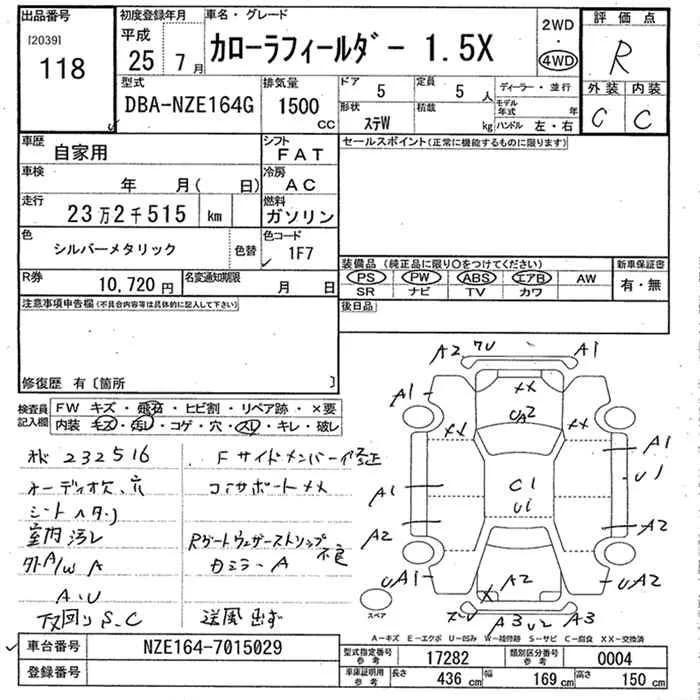 出品番号
[2039]
118
初度登録年月
平成
25年7月
車名・グレード
カローラフィールダー 1.5X
2WD
・
4WD
評価点
R
外装 内装
C C
型式
DBA-NZE164G
排気量
1500
cc
ドア
5
定員
5人
形状
ステW
積載
kg
ディーラー・並行
モデル年式 年
ハンドル 左・右
車歴
自家用
シフト
FAT
セールスポイント(正常に機能するものに限ります)
車検
年 月( 日)
冷房
AC
走行
23万2千515 km
燃料
ガソリン
色
シルバーメタリック
色替
色コード
1F7
R券
10,720円
名変通知期限
月 日
装備品(純正品に限り○をつけてください)
PS PW ABS エアB AW
SR ナビ TV カワ
新車保証書
有・無
後日品
注意事項申告欄(不具合内容等は具体的に記入して下さい)
修復歴 有〔箇所 〕
検査員記入欄
FW キズ・飛石・ヒビ割・リペア跡・×要
内装 キズ・汚レ・コゲ・穴・スレ・キレ・破レ
232516
Fサイドメンバー修正
オーディオ欠、穴
コアサポートメメ
シートヘタリ
室内汚レ
Rゲートウェザーストリップ不良
外A/W A
カミラーA
A・U
下回りS、C
送風出ず
A2
A1
A1
XX
UA2
XX
XX
A1
U1
A1
C1
U1
A2
A2
UA1
A2
UA2
X
A3
U2
A3
スペア
A-キズ E-エクボ U-凹み W-補修跡 S-サビ C-腐食 XX-交換済
車台番号
NZE164-7015029
登録番号
型式指定番号
参考
17282
類別区分番号
参考
0004
車庫証明用
参考
長さ
436 cm
幅
169 cm
高さ
150 cm